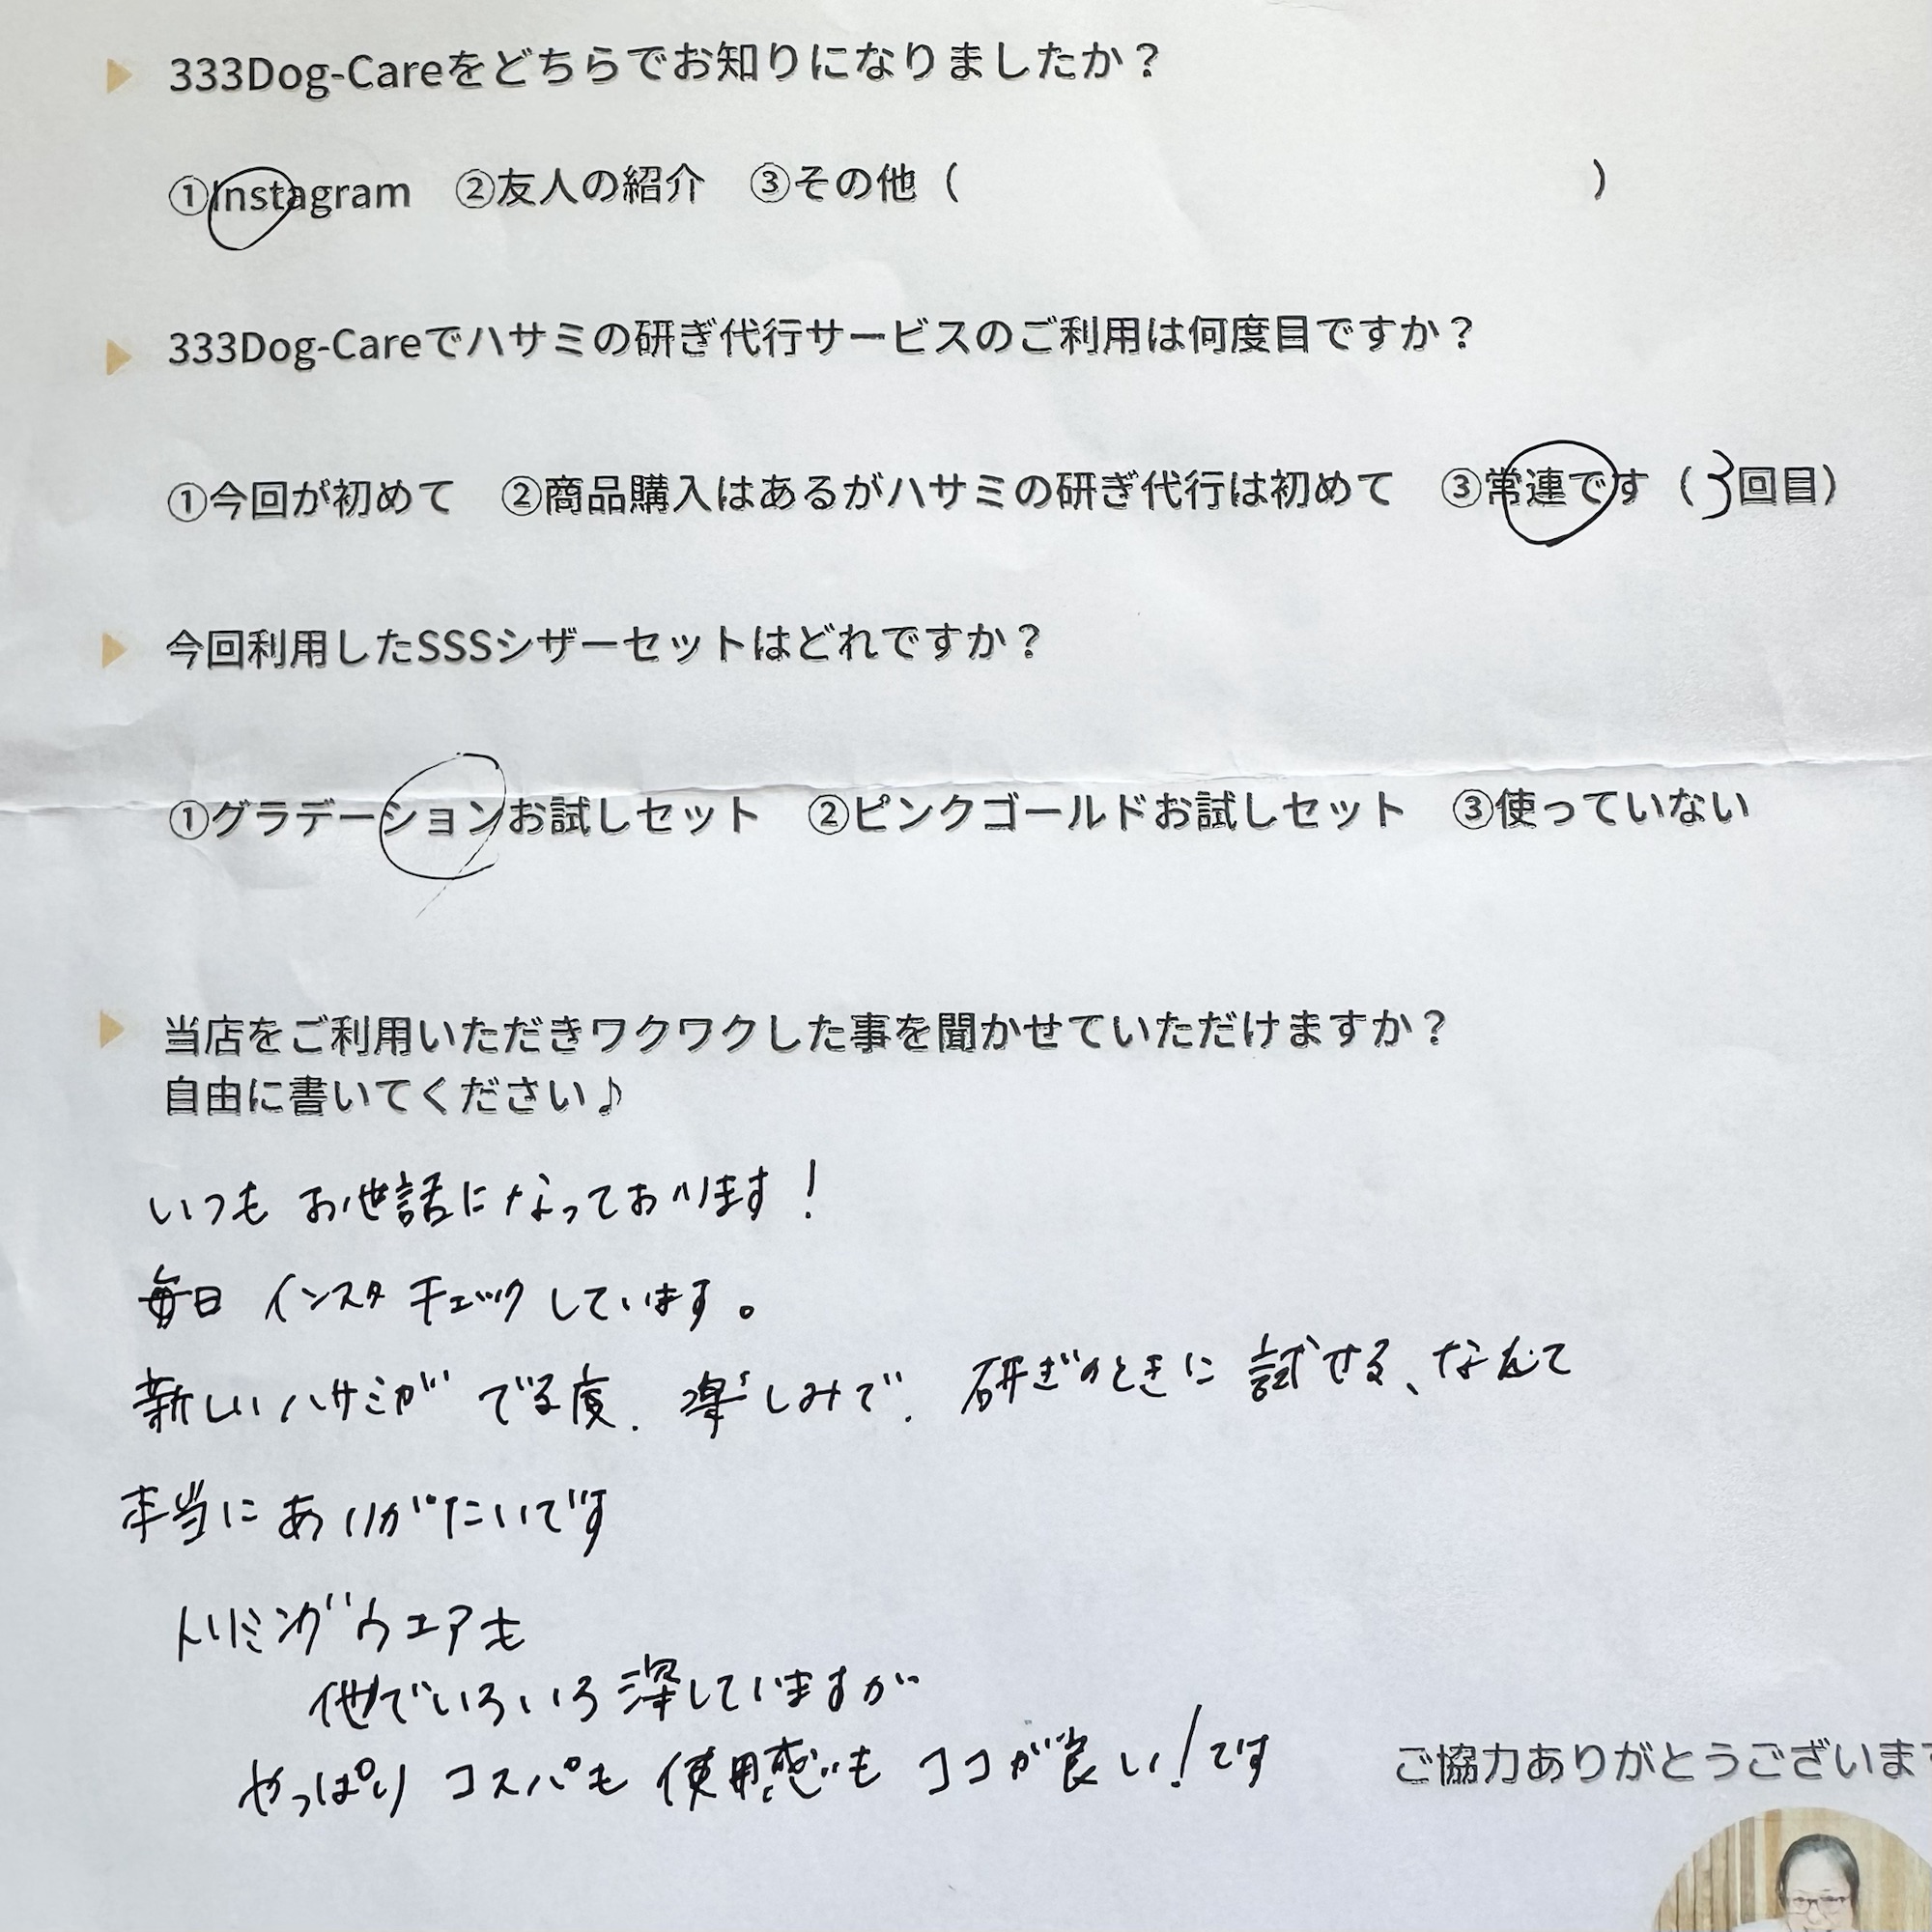 333Dog-Careをどちらでお知りになりましたか？
①Instagram ②友人の紹介 ③その他（ ）
333Dog-Careでハサミの研ぎ代行サービスのご利用は何度目ですか？
①今回が初めて ②商品購入はあるがハサミの研ぎ代行は初めて ③常連です（3回目）
今回利用したSSSシザーセットはどれですか？
①グラデーションお試しセット ②ピンクゴールドお試しセット ③使っていない
当店をご利用いただきワクワクした事を聞かせていただけますか？
自由に書いてください♪
いつも お世話になっております！
毎日 インスタ チェックしています。
新しいハサミが でる度、楽しみで、研ぎのときに 試せる、なんて
本当に ありがたいです
トリミングウエアも
他でいろいろ探していますが
やっぱり コスパも 使用感も ココが良い！です
ご協力ありがとうございま